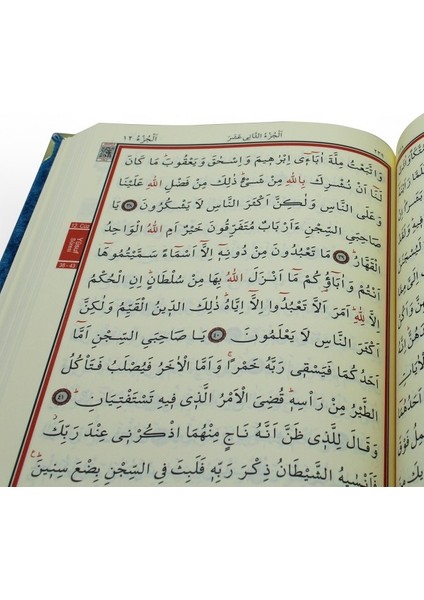 اَلْجُزْءُ الثَّانِي عَشَرَ
اَلْجُزْءُ ١٢
وَاتَّبَعْتُ مِلَّةَ اٰبَٓاءِٓى اِبْرٰهِيمَ وَاِسْحٰقَ وَيَعْقُوبَ مَا كَانَ
لَنَٓا اَنْ نُشْرِكَ بِاللّٰهِ مِنْ شَىْءٍ ذٰلِكَ مِنْ فَضْلِ اللّٰهِ عَلَيْنَا
وَعَلَى النَّاسِ وَلٰكِنَّ اَكْثَرَ النَّاسِ لَا يَشْكُرُونَ ﴿٣٨﴾ يَا
صَاحِبَىِ السِّجْنِ ءَاَرْبَابٌ مُتَفَرِّقُونَ خَيْرٌ اَمِ اللّٰهُ الْوَاحِدُ
الْقَهَّارُ ﴿٣٩﴾ مَا تَعْبُدُونَ مِنْ دُونِهٖٓ اِلَّٓا اَسْمَٓاءً سَمَّيْتُمُوهَٓا
اَنْتُمْ وَاٰبَٓاؤُكُمْ مَٓا اَنْزَلَ اللّٰهُ بِهَا مِنْ سُلْطَانٍ اِنِ الْحُكْمُ
اِلَّا لِلّٰهِ اَمَرَ اَلَّا تَعْبُدُٓوا اِلَّٓا اِيَّاهُ ذٰلِكَ الدّٖينُ الْقَيِّمُ وَلٰكِنَّ
اَكْثَرَ النَّاسِ لَا يَعْلَمُونَ ﴿٤٠﴾ يَا صَاحِبَىِ السِّجْنِ اَمَّٓا
اَحَدُكُمَا فَيَسْقٖى رَبَّهُ خَمْرًا وَاَمَّا الْاٰخَرُ فَيُصْلَبُ فَتَاْكُلُ
الطَّيْرُ مِنْ رَاْسِهٖ قُضِىَ الْاَمْرُ الَّذٖى فٖيهِ تَسْتَفْتِيَانِ ﴿٤١﴾
وَقَالَ لِلَّذٖى ظَنَّ اَنَّهُ نَاجٍ مِنْهُمَا اذْكُرْنٖى عِنْدَ رَبِّكَ
فَاَنْسٰيهُ الشَّيْطَانُ ذِكْرَ رَبِّهٖ فَلَبِثَ فِى السِّجْنِ بِضْعَ سِنٖينَ